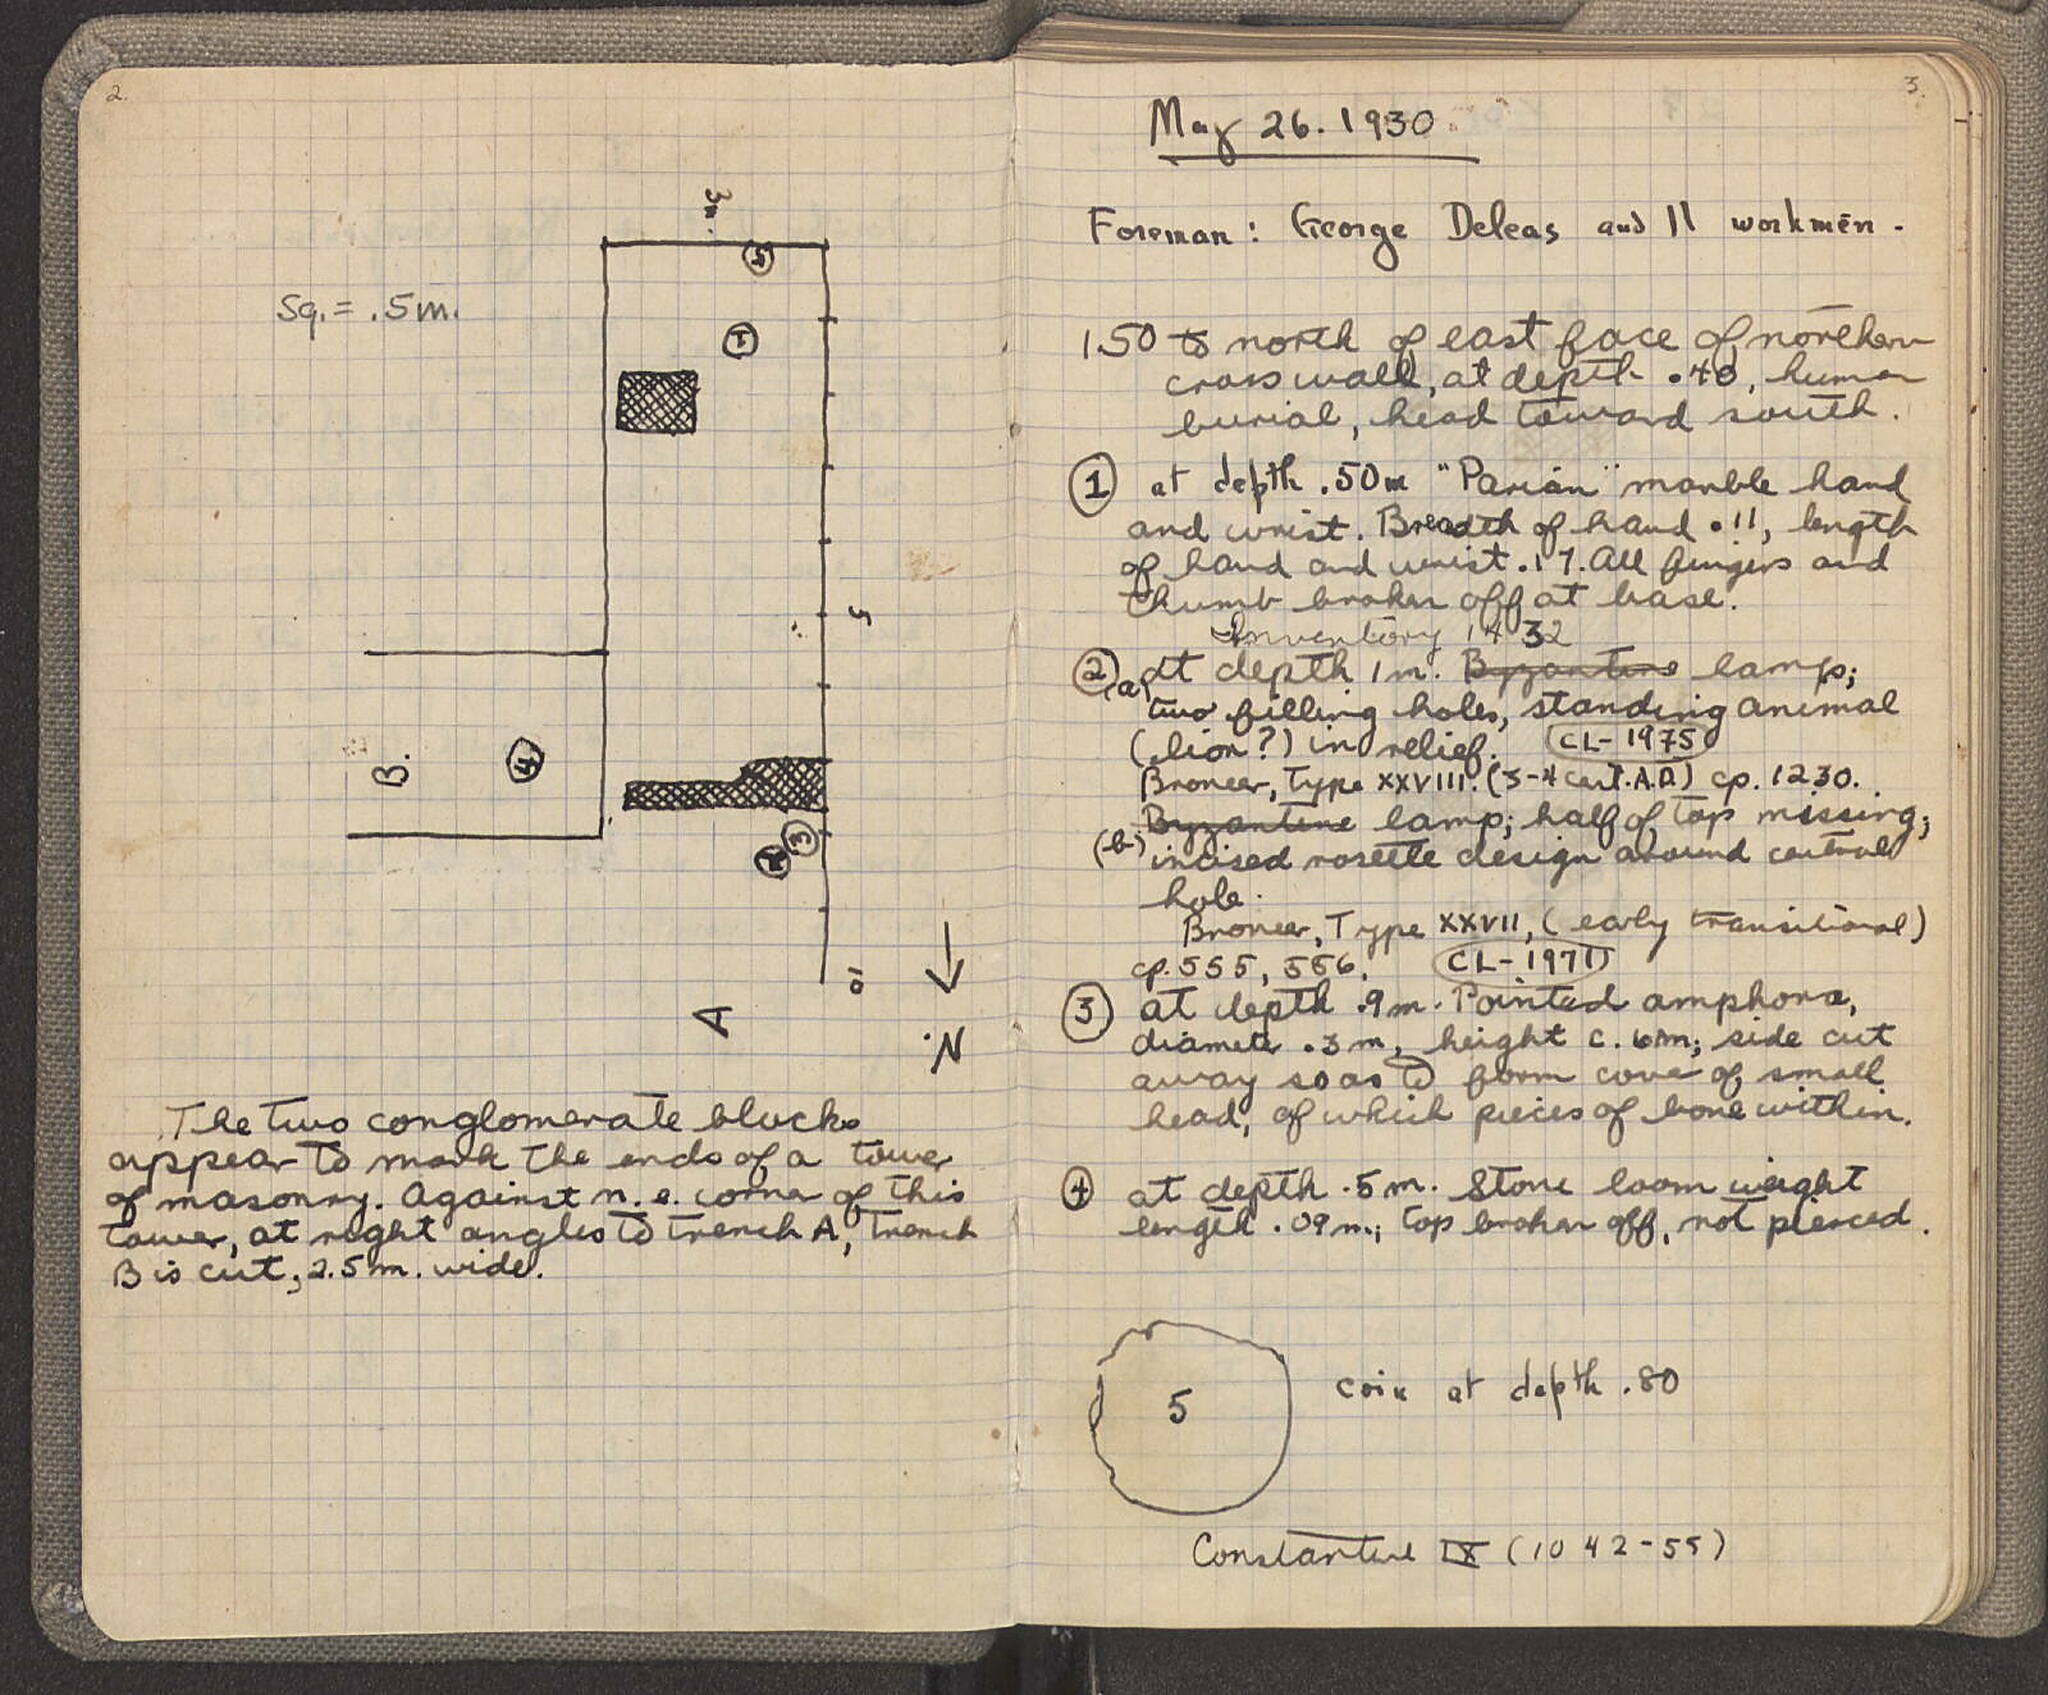 2.
3m.
5
Sq. = .5m.
1
5
B.
4
3
2
10
A
N
The two conglomerate blocks
appear to mark the ends of a tower
of masonry. Against n.e. corner of this
tower, at right angles to trench A, trench
B is cut, 2.5m. wide.
3.
May 26. 1930
Foreman: George Deleas and 11 workmen.
1.50 to north of east face of northern
cross wall, at depth .40, human
burial, head toward south.
1 at depth .50m "Parian" marble hand
and wrist. Breadth of hand .11, length
of hand and wrist .17. All fingers and
thumb broken off at base.
Inventory 1432
2 (a) At depth 1m. Byzantine lamp;
two filling holes, standing animal
(lion?) in relief. CL-1975
Broneer, Type XXVIII. (3-4 cent. A.D.) cp. 1230.
Byzantine lamp; half of top missing;
(b) incised rosette design around central
hole.
Broneer, Type XXVII, (early transitional)
cp. 555, 556. CL-1971
3 at depth .9m. Pointed amphora,
diameter .3m, height c. 6m; side cut
away so as to form cover of small
head, of which pieces of bone within.
4 at depth .5m. Stone loom weight
length .09m.; top broken off, not pierced.
5 coin at depth .80
Constantine IX (1042-55)